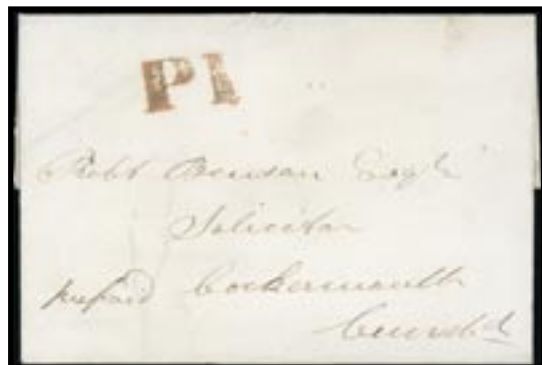 P1
Robt Benson Esqre
Solicitor
prepaid Cockermouth
Cumbd